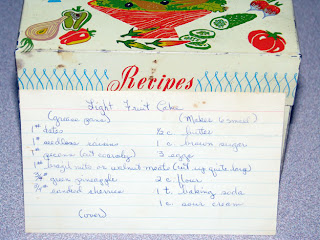 Recipes
Light Fruit Cake
(Makes 10 small)
1# dates ½ c. butter
1# seedless raisins 1 c. brown sugar
1# pecans (cut coarsely) 3 eggs
1# brazil nuts or walnut meats (cut up quite large)
¾# green pineapple 2 c. flour
¾# candied cherries 1 t. baking soda
1 c. sour cream
(over)